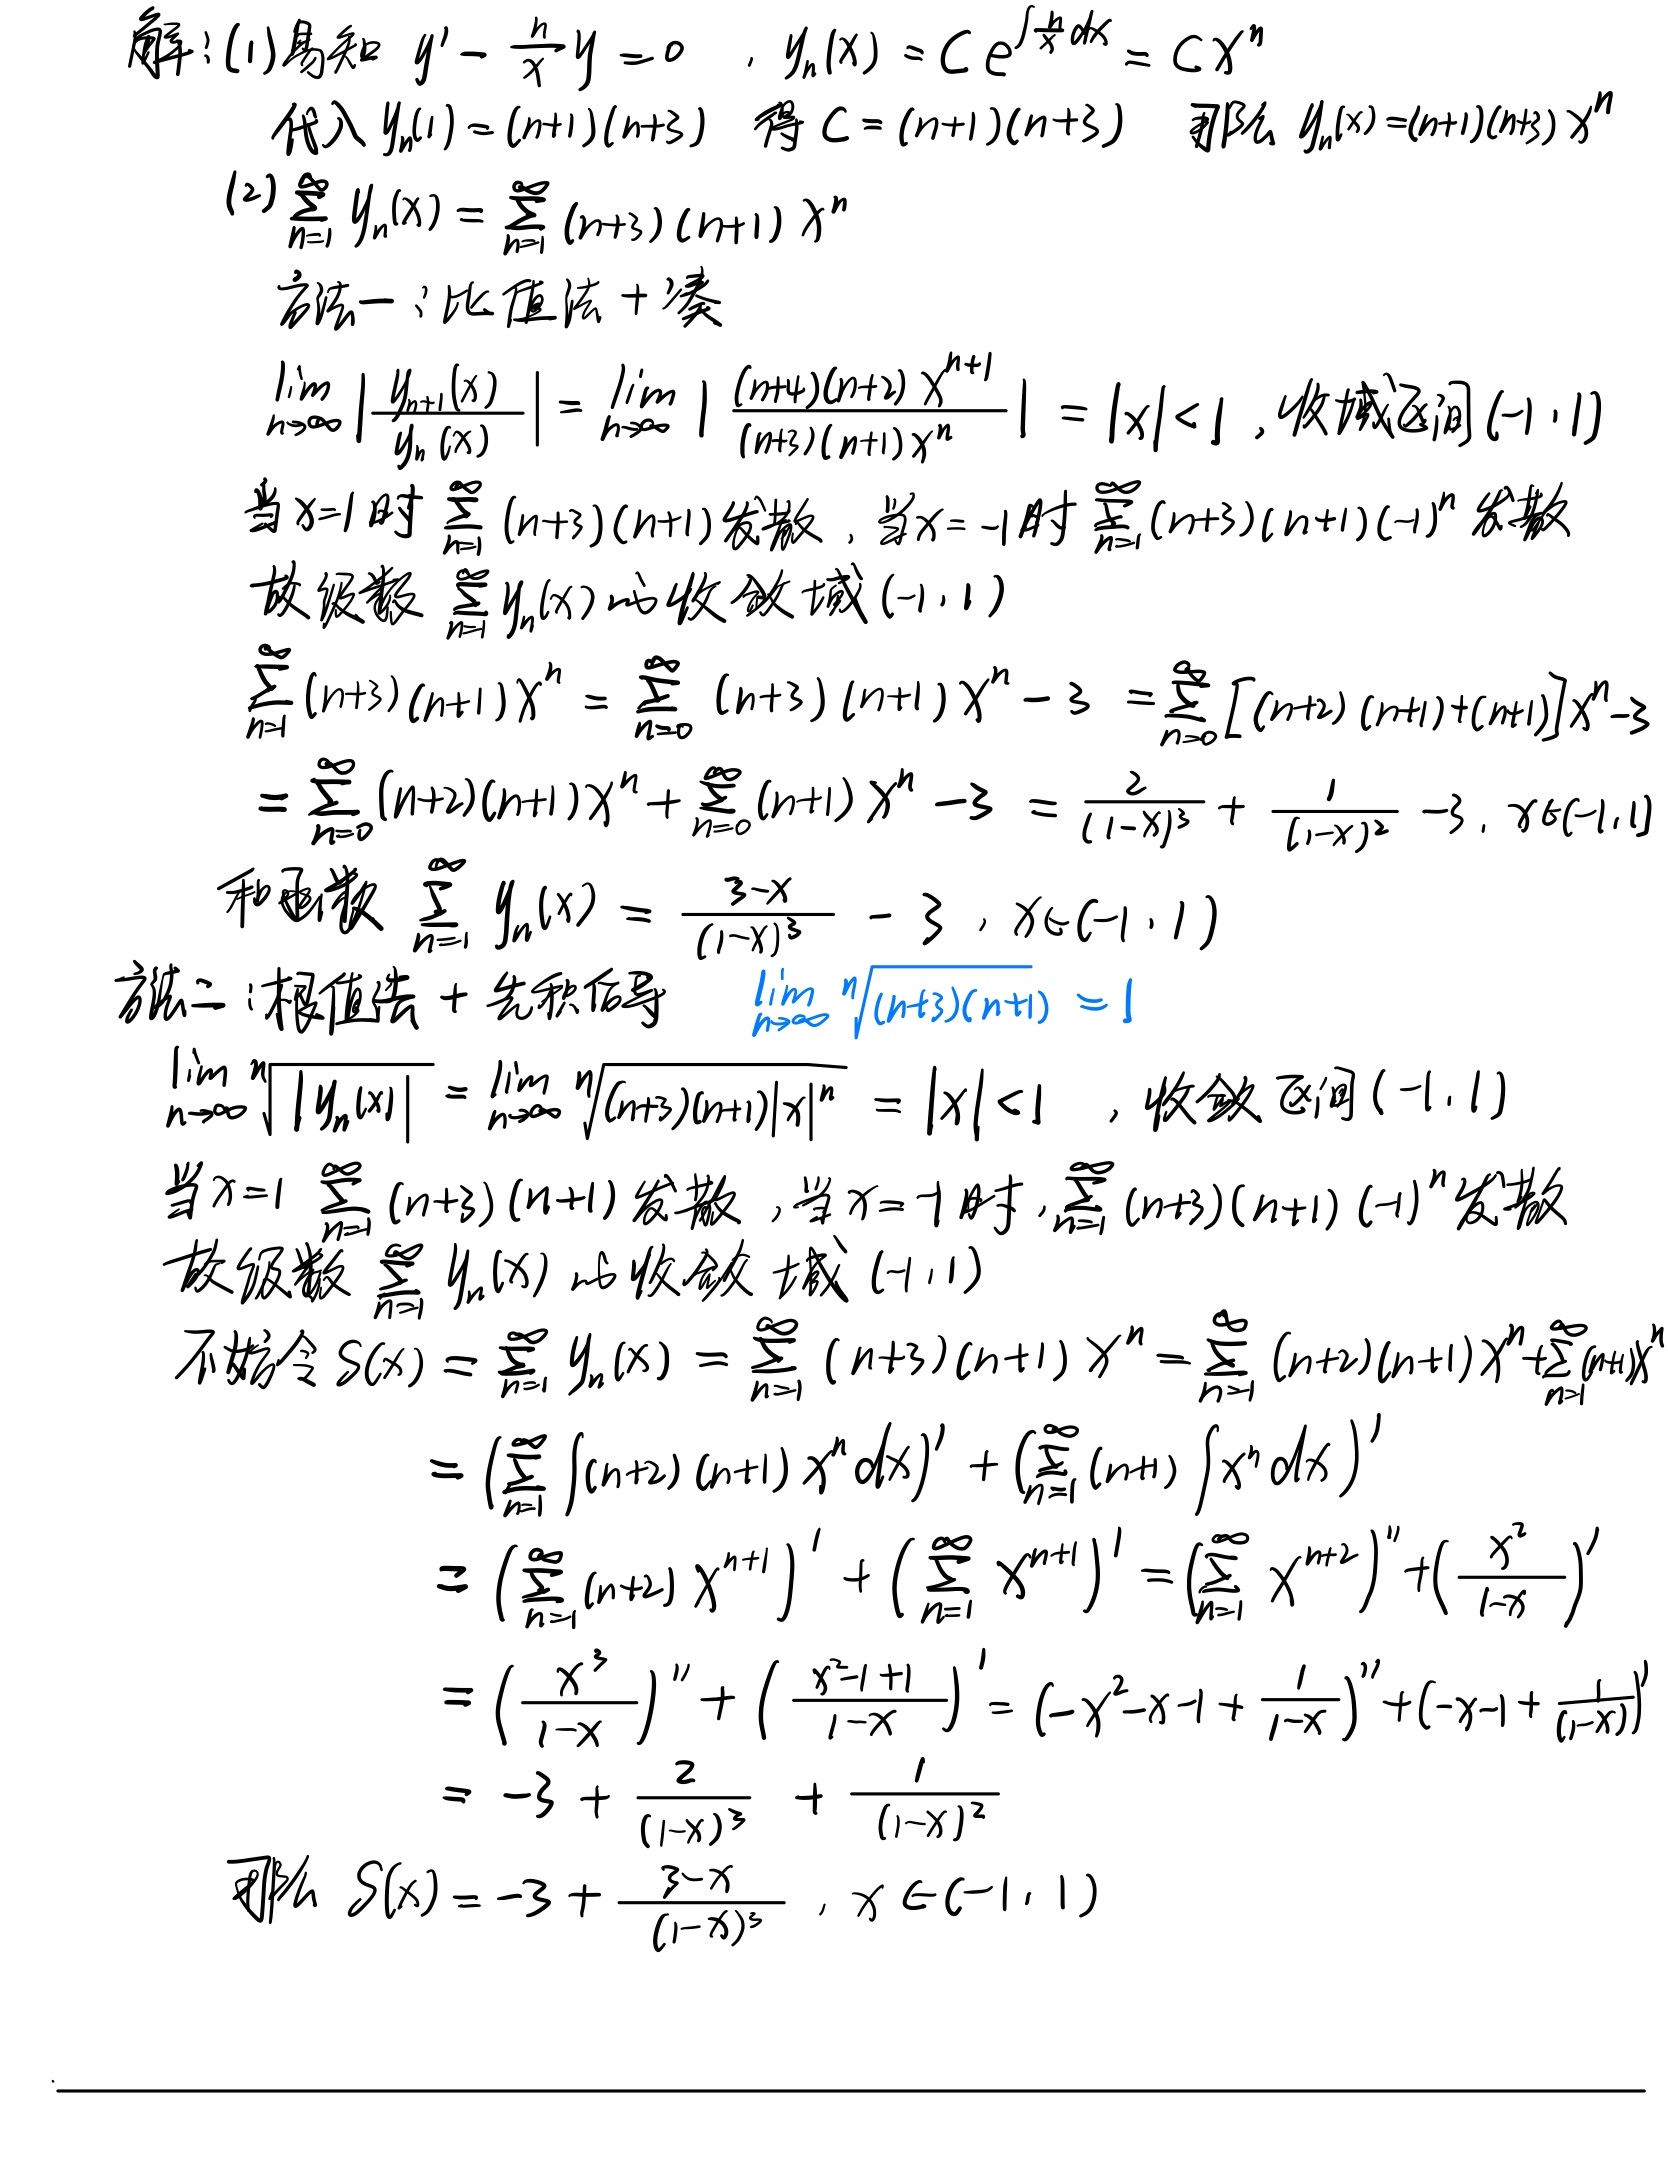 解:(1)易知 y' - \frac{n}{x}y = 0 , y_n(x) = Ce^{∫\frac{n}{x}dx} = Cx^n
代入 y_n(1) = (n+1)(n+3) 得 C = (n+1)(n+3) 那么 y_n(x) = (n+1)(n+3)x^n
(2) \sum_{n=1}^{∞} y_n(x) = \sum_{n=1}^{∞} (n+3)(n+1)x^n
方法一:比值法+凑
\lim_{n→∞} |\frac{y_{n+1}(x)}{y_n(x)}| = \lim_{n→∞} |\frac{(n+4)(n+2)x^{n+1}}{(n+3)(n+1)x^n}| = |x| < 1 ,收域区间(-1,1)
当x=1时 \sum_{n=1}^{∞} (n+3)(n+1)发散,当x=-1时 \sum_{n=1}^{∞} (n+3)(n+1)(-1)^n 发散
故级数 \sum_{n=1}^{∞} y_n(x) 的收敛域(-1,1)
\sum_{n=1}^{∞} (n+3)(n+1)x^n = \sum_{n=0}^{∞} (n+3)(n+1)x^n - 3 = \sum_{n=0}^{∞} [(n+2)(n+1)+(n+1)]x^n - 3
= \sum_{n=0}^{∞} (n+2)(n+1)x^n + \sum_{n=0}^{∞} (n+1)x^n - 3 = \frac{2}{(1-x)^3} + \frac{1}{(1-x)^2} - 3, x∈(-1,1)
和函数 \sum_{n=1}^{∞} y_n(x) = \frac{3-x}{(1-x)^3} - 3 , x∈(-1,1)
方法二:根值法 + 先积后导 \lim_{n→∞} \sqrt[n]{(n+3)(n+1)} = 1
\lim_{n→∞} \sqrt[n]{|y_n(x)|} = \lim_{n→∞} \sqrt[n]{(n+3)(n+1)|x|^n} = |x| < 1 ,收敛区间(-1,1)
当x=1 \sum_{n=1}^{∞} (n+3)(n+1)发散,当x=-1时, \sum_{n=1}^{∞} (n+3)(n+1)(-1)^n 发散
故级数 \sum_{n=1}^{∞} y_n(x) 的收敛域(-1,1)
不妨令 S(x) = \sum_{n=1}^{∞} y_n(x) = \sum_{n=1}^{∞} (n+3)(n+1)x^n = \sum_{n=1}^{∞} (n+2)(n+1)x^n + \sum_{n=1}^{∞} (n+1)x^n
= (\sum_{n=1}^{∞} ∫(n+2)(n+1)x^n dx)' + (\sum_{n=1}^{∞} (n+1)∫x^n dx)'
= (\sum_{n=1}^{∞} (n+2)x^{n+1})' + (\sum_{n=1}^{∞} x^{n+1})' = (\sum_{n=1}^{∞} x^{n+2})'' + (\frac{x^2}{1-x})'
= (\frac{x^3}{1-x})'' + (\frac{x^2-1+1}{1-x})' = (-x^2-x-1+\frac{1}{1-x})'' + (-x-1+\frac{1}{(1-x)})'
= -3 + \frac{2}{(1-x)^3} + \frac{1}{(1-x)^2}
那么 S(x) = -3 + \frac{3-x}{(1-x)^3} , x∈(-1,1)